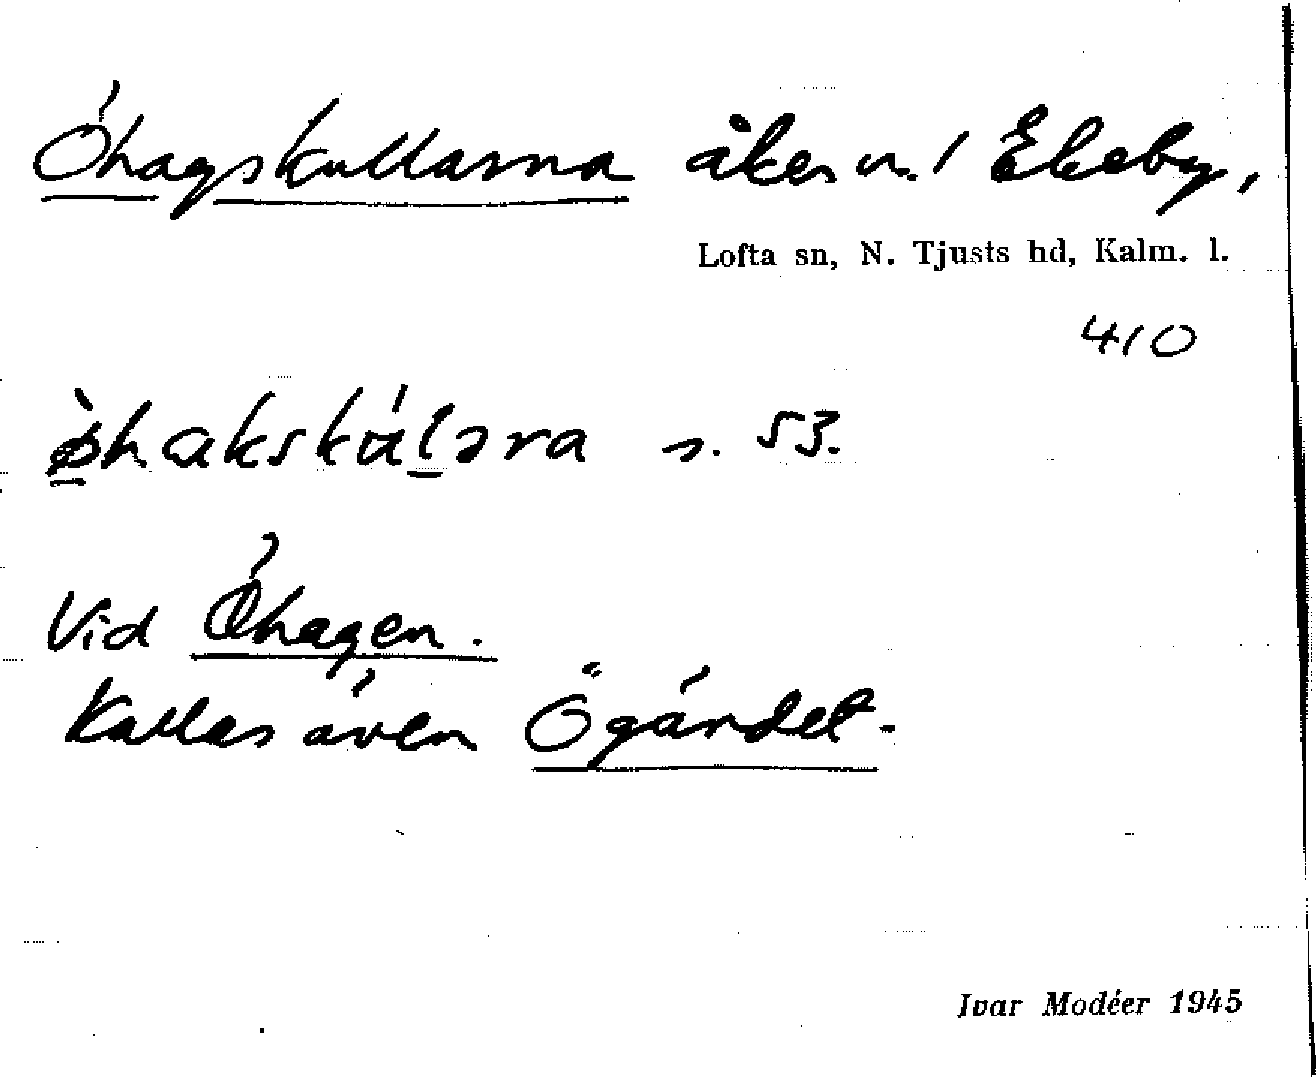 Öhagskullarna åker v. / Ekeby,
Lofta sn, N. Tjusts hd, Kalm. l.
410
ø̀hakskúləra s. 53.
Vid Öhagen.
Kallas även Ögärdet.
Ivar Modéer 1945